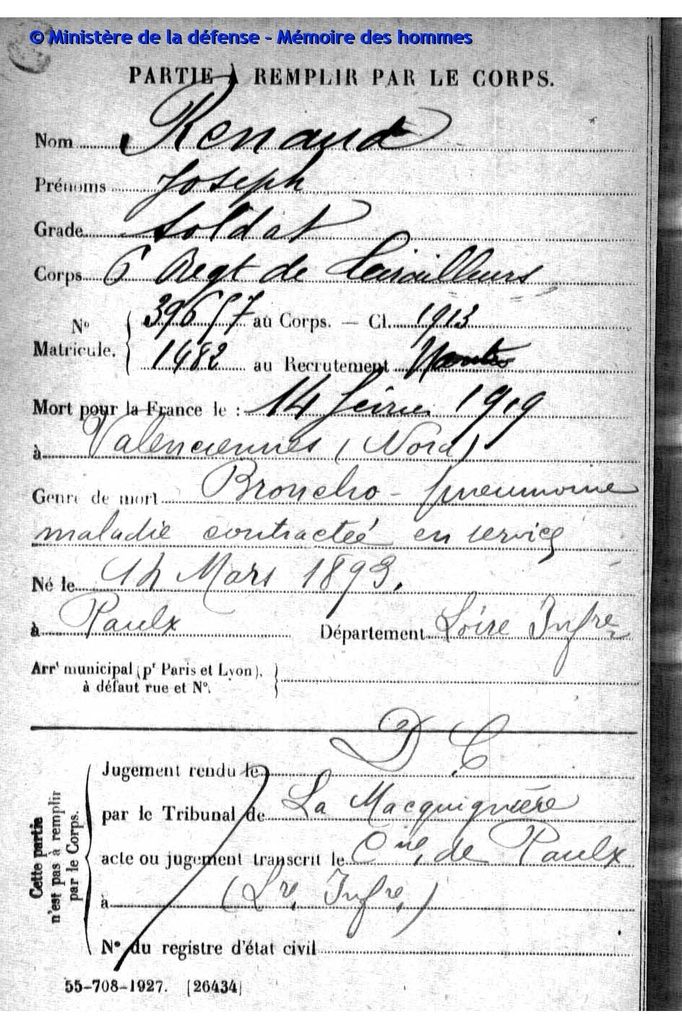 © Ministère de la défense - Mémoire des hommes
PARTIE À REMPLIR PAR LE CORPS.
Nom Renaud
Prénoms Joseph
Grade Soldat
Corps 6 Regt de Tirailleurs
N° 39657 au Corps. — Cl. 1913
Matricule. 1482 au Recrutement Nantes
Mort pour la France le : 14 février 1919
à Valenciennes (Nord)
Genre de mort Broncho-pneumonie
maladie contractée en service
Né le 14 Mars 1893.
à Paulx Département Loire Infre
Arrt municipal (pr Paris et Lyon),
à défaut rue et N°.
D C
Jugement rendu le
par le Tribunal de La Macquignière
acte ou jugement transcrit le Cne de Paulx
à (Lre Infre)
N° du registre d'état civil
Cette partie
n'est pas à remplir
par le Corps.
55-708-1927. [26434]